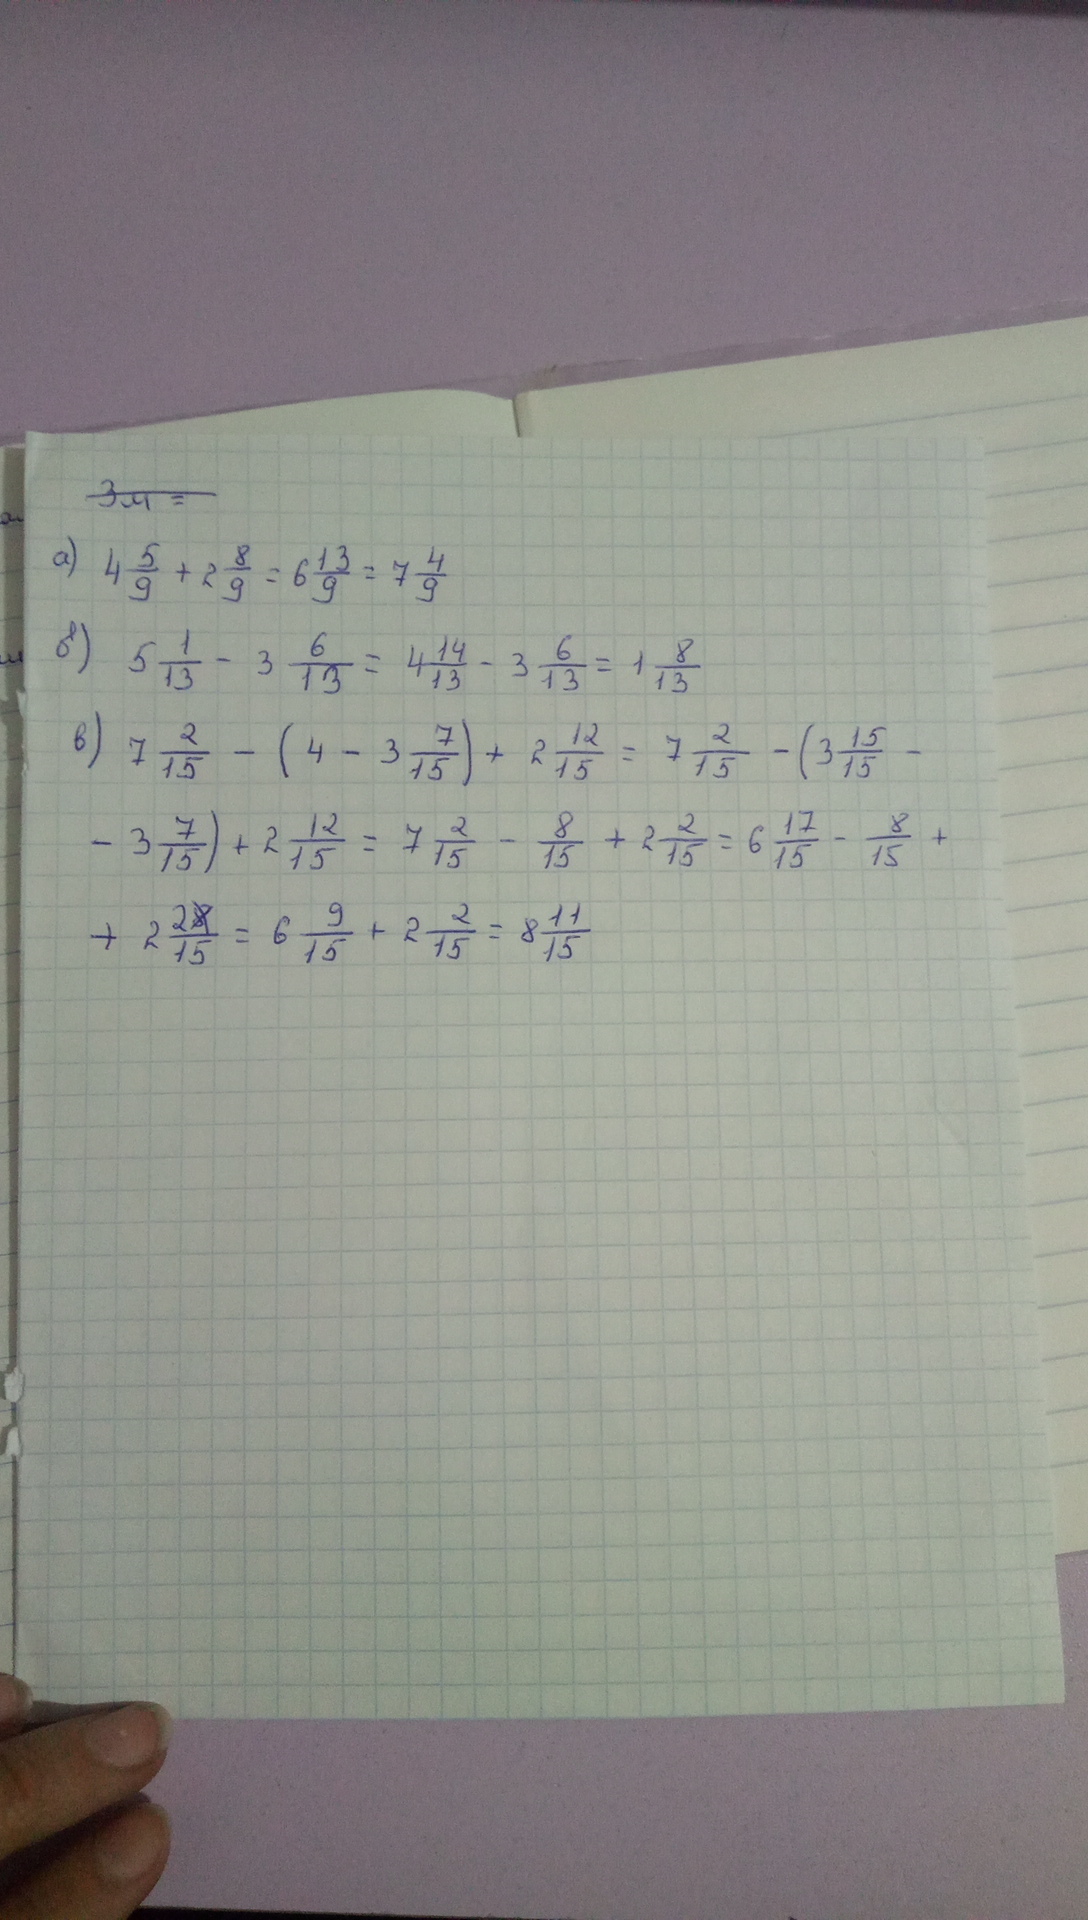 3м =
а) 4 5/9 + 2 8/9 = 6 13/9 = 7 4/9
б) 5 1/13 - 3 6/13 = 4 14/13 - 3 6/13 = 1 8/13
в) 7 2/15 - (4 - 3 7/15) + 2 12/15 = 7 2/15 - (3 15/15 -
- 3 7/15) + 2 12/15 = 7 2/15 - 8/15 + 2 2/15 = 6 17/15 - 8/15 +
+ 2 2/15 = 6 9/15 + 2 2/15 = 8 11/15